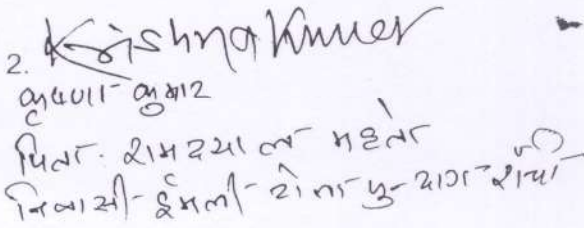 2. Krishna Kumar
कृष्णा कुमार
पिता- रामदयाल महतो
निवासी- ईमली टोला धुर्वा राँची